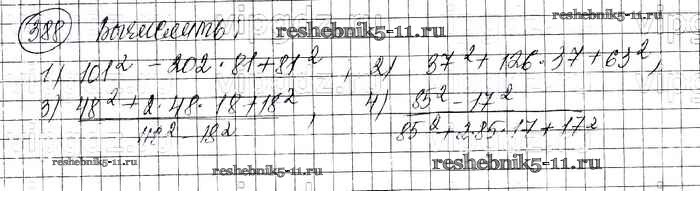 388 Вычислить: reshebnik5-11.ru reshebnik5-11.ru
1) 101² - 202 · 81 + 81², 2) 37² + 126 · 37 + 63²,
3) 48² + 2 · 48 · 18 + 18² , 4) 85² - 17²
48² - 18² 85² + 2.85 · 17 + 17²
reshebnik5-11.ru reshebnik5-11.ru reshebnik5-11.ru